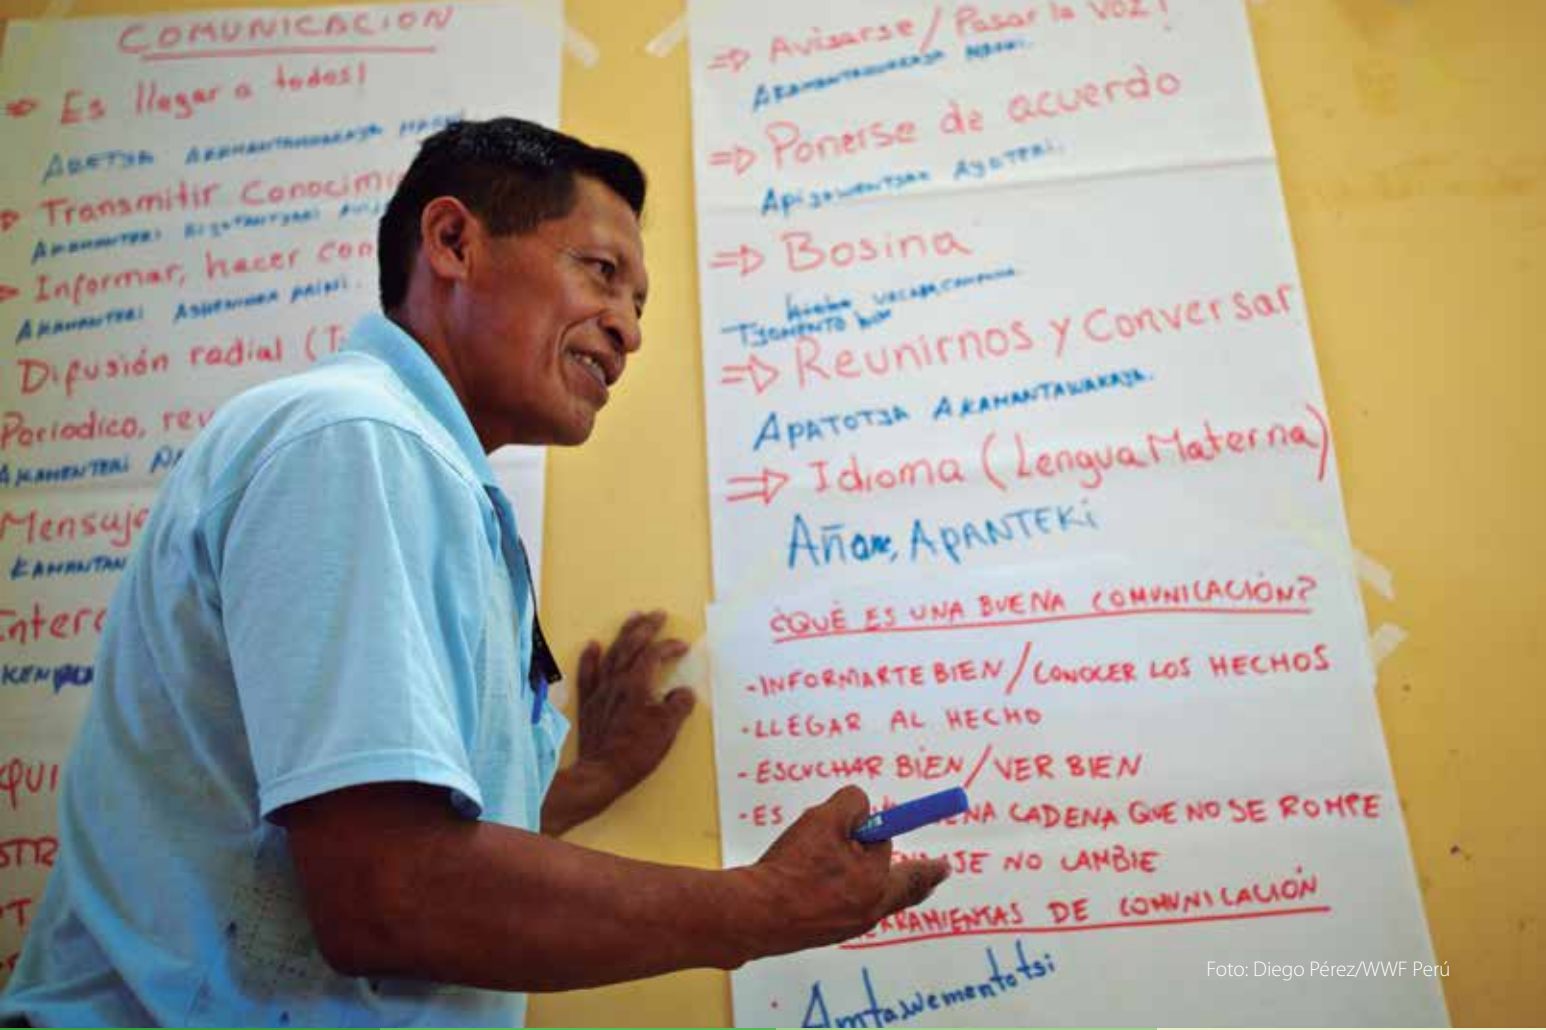 COMUNICACION
⇒ Es llegar a todos!
ADETSA
⇒ Transmitir Conocimi
AKAMANTERI
⇒ Informar, hacer con
AKAMANTERI ASHENINKA
Difusión radial (T
Periodico, rev
AKAMENTERI
Mensaje
KAMANTAN
Interc
QUI
STR
⇒ Avisarse / Pasar la voz!
AKAMANTAWAKAJA
⇒ Ponerse de acuerdo
AYOTERI.
⇒ Bosina
TJOMENTO
⇒ Reunirnos y Conversar
APATOTJA AKAMANTAWAKAJA.
⇒ Idioma (Lengua Materna)
APANTEKI
¿QUÉ ES UNA BUENA COMUNICACIÓN?
-INFORMARTE BIEN / CONOCER LOS HECHOS
-LLEGAR AL HECHO
-ESCUCHAR BIEN / VER BIEN
-ES NA CADENA QUE NO SE ROMPE
ENSAJE NO CAMBIE
ERRAMIENTAS DE COMUNICACIÓN
Amtawementotsi
Foto: Diego Pérez/WWF Perú